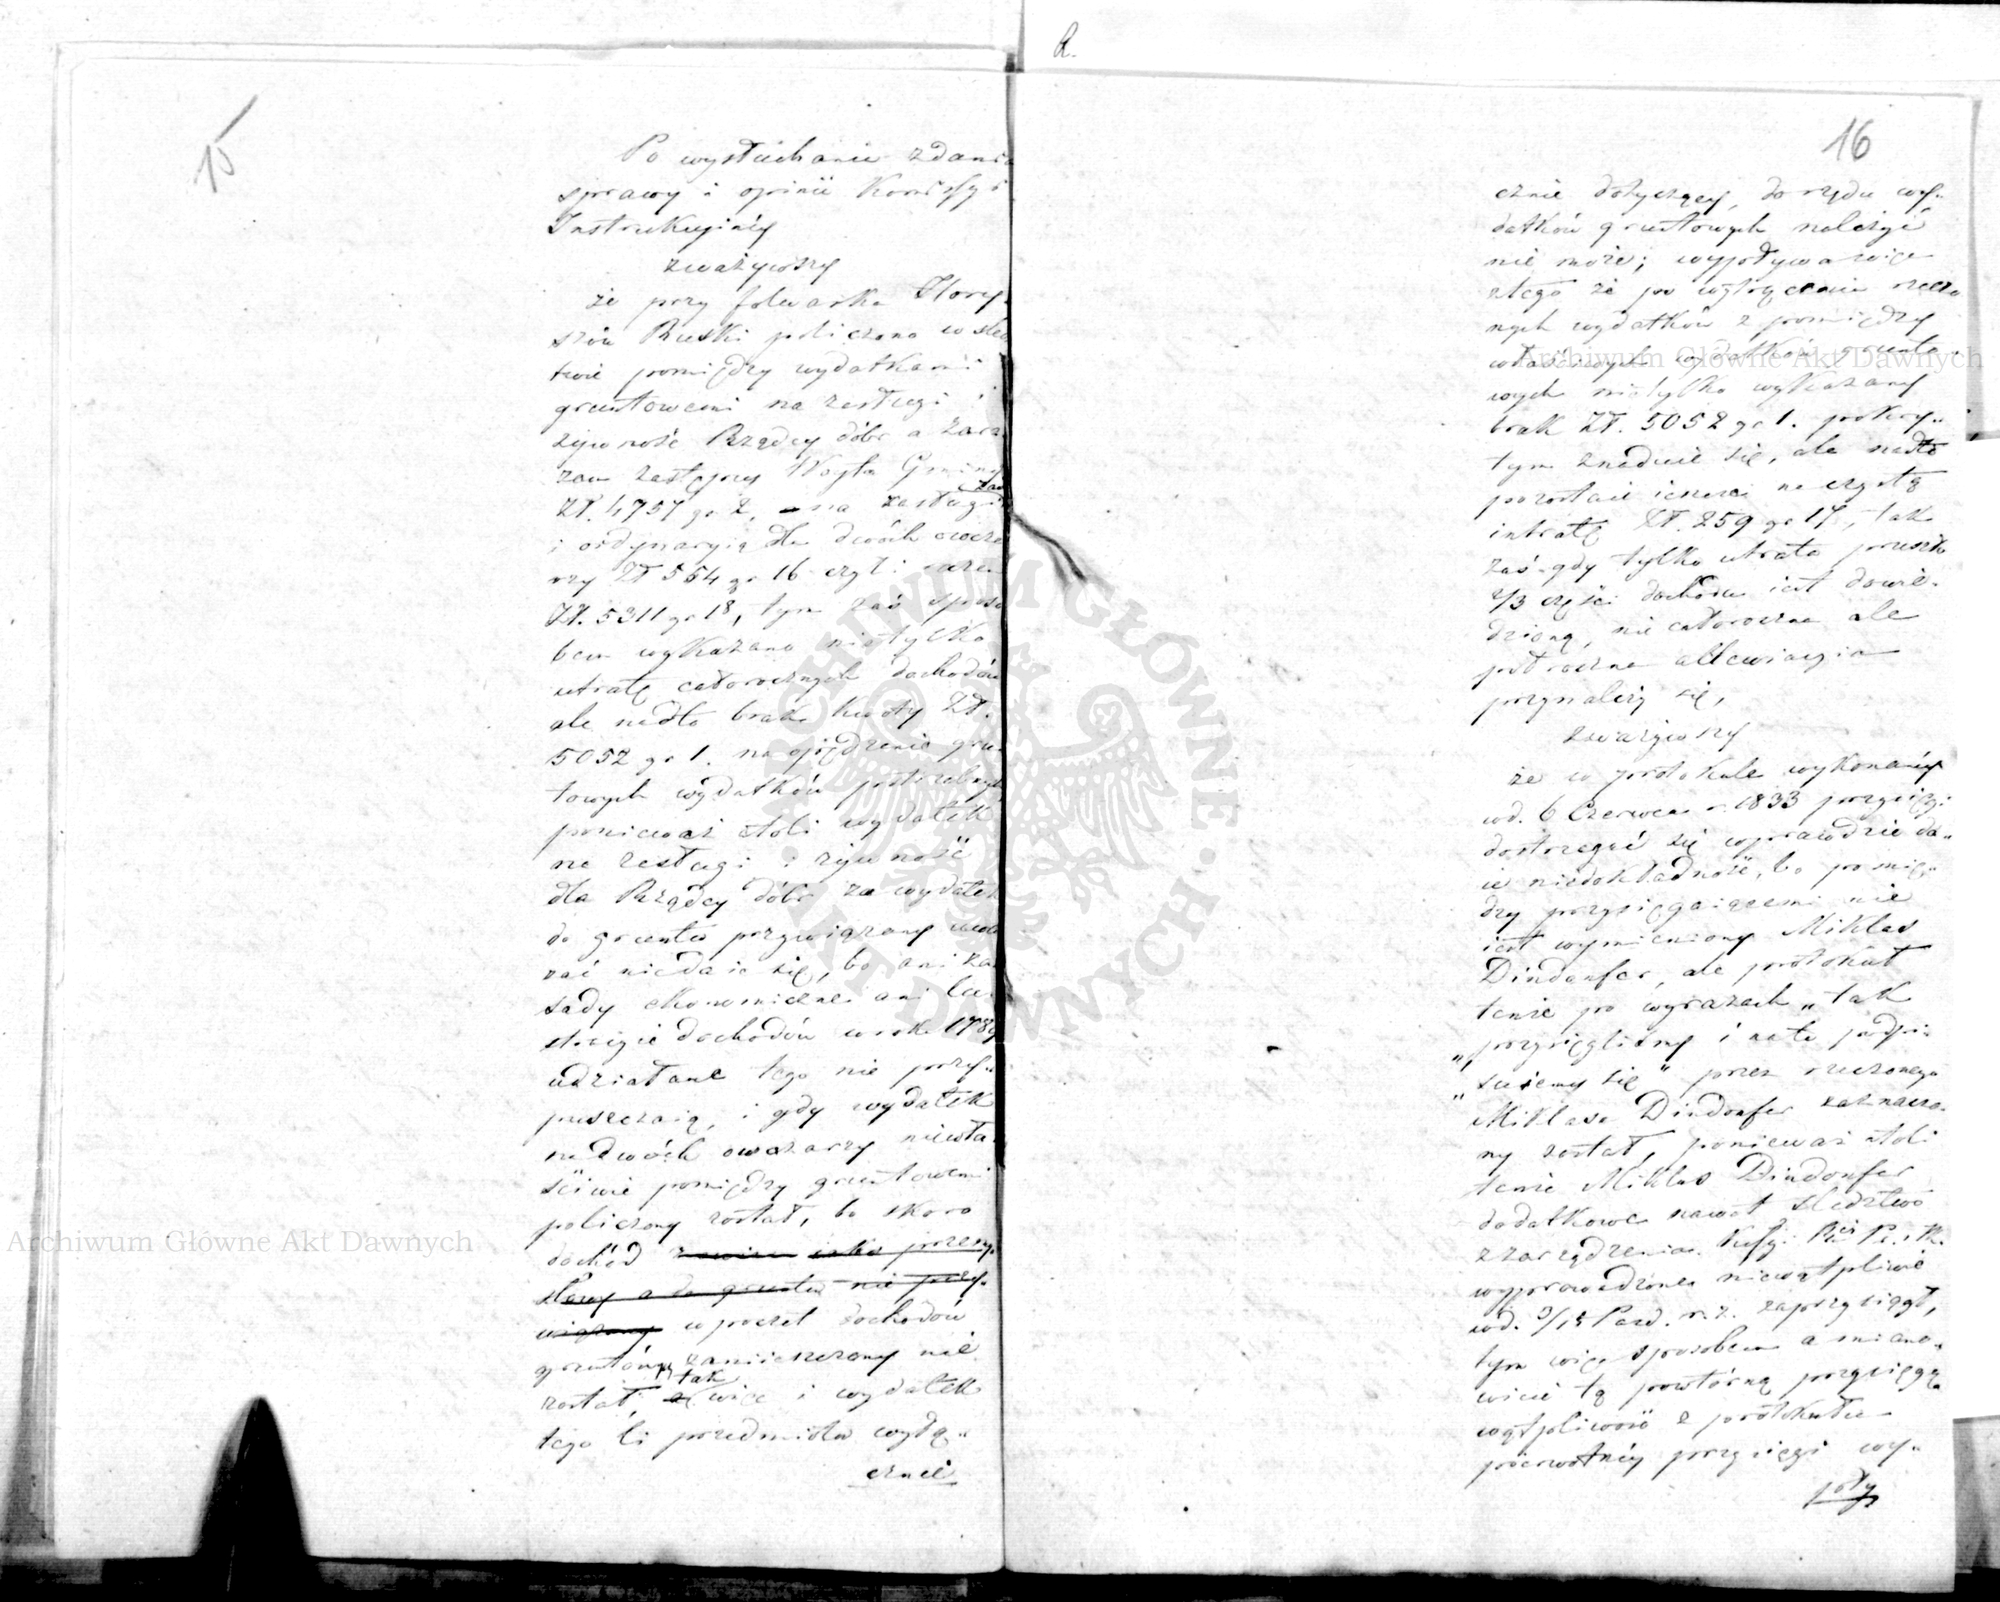 15
Po wysłuchaniu zdania
sprawy i opinii Kommissyi
Instrukcyiney
zważywszy
że przy folwarku Hory„
szów Ruski policzono w śle
twie pomiędzy wydatkami
gruntowemi na zasługi i
żywność Rządcy dóbr a zara
zem zastępcy Wóyta Gminy
Zł. 4757 gr 2, na zasługi
i ordynaryią dla dwóch owcza
rzy Zł 554 gr 16 czyli razem
Zł. 5311 gr 18, tym zaś sposo
bem wykazano nietylko
utratę całorocznych dochodów
ale nadto brak kwoty Zł.
5052 gr 1. na opędzenie grun
towych wydatków potrzebnych
ponieważ atoli wydatek
na zasługi i żywność
dla Rządcy dóbr za wydatek
do gruntu przywiązany uwa
żać nieda ie się, bo ani za
sady ekonomiczne ani lu
stracyie dochodów w roku 1789
udziałane tego nie przy„
puszczaią, i gdy wydatek
na dwóch owczarzy niewła
ściwie pomiędzy gruntowemi
policzony został, bo skoro
dochód z owiec iako przemy„
słowy a do gruntu nie przy„
wiązany w poczet dochodów
gruntowych zamieszczony nie
został, tak więc i wydatek
tego li przedmiotu wyłą„
cznie
R.
16
cznie dotyczący, do rzędu wy„
datków gruntowych należyć
nie może; wypływa więc
ztego że po wytrąceniu rzeczo
nych wydatków z pomiędzy
właściwych wydatków grunto
wych nietylko wykazany
brak Zł. 5052 gr 1. pokry„
tym znaduie się, ale nadto
pozostaie ieszcze na czystą
intratę Zł. 259 gr 17, tak
zaś gdy tylko utrata przeszło
2/3 części dochodu iest dowie„
dzioną, nie całoroczna ale
półroczna allewiacyia
przynależy się,
zważywszy
że w protokule wykonaney
w d. 6 Czerwca r. 1833 przysięgi
dostrzegać się wprawdzie da„
ie niedokładność, bo pomię„
dzy przysięgaiącemi nie
iest wymieniony Miklas
Dindonfer, ale protokuł
tenże po wyrazach „tak
„przysięgliśmy i na to podpi„
„suiemy się" przez rzeczonego
Miklasa Dindonfer zaznaczo
ny został, ponieważ atoli
tenże Miklas Dindonfer
dodatkowe nawet śledztwo
z zarządzenia
wyprowadzone niewątpliwie
w d. 3/15 Paźd. r. z. zaprzysiągł,
tym więc sposobem a miano„
wicie tą powtórną przysięgą
wątpliwość z protokułu
pierwotney przysięgi wy„
pły
Archiwum Główne Akt Dawnych
Archiwum Główne Akt Dawnych
ARCHIWUM GŁÓWNE · AKT DAWNYCH ·